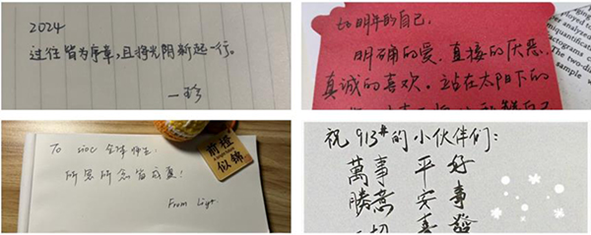 2024
过往皆为序章,且将光阴新起一行。
一珍
to 明年的自己,
明确的爱,直接的厌恶,
真诚的喜欢。站在太阳下的
The two-di
sample
To SIOC 全体师生:
所愿所念皆成真!
From
前橙
似锦
祝913#的小伙伴们:
萬事 平 好
勝意 安 事
一切 喜 發